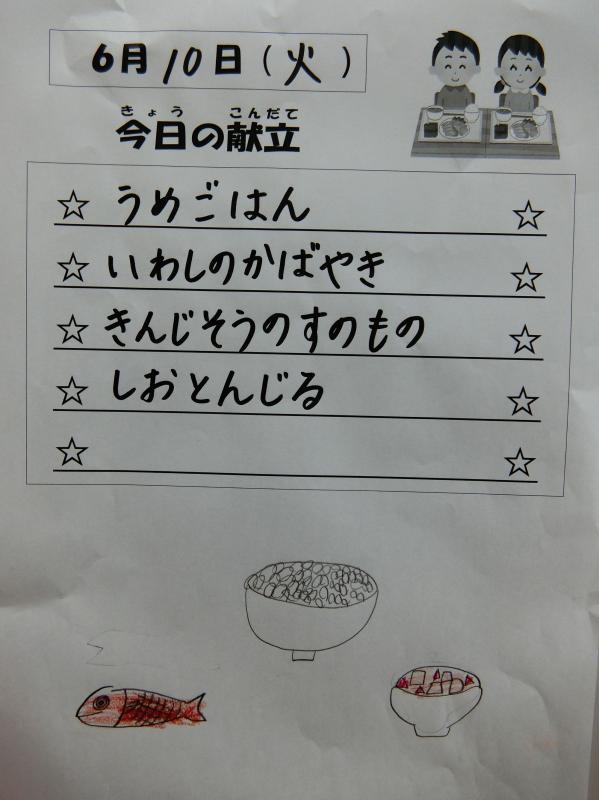 6月10日(火)
きょう こんだて
今日の献立
☆ うめごはん ☆
☆ いわしのかばやき ☆
☆ きんじそうのすのもの ☆
☆ しおとんじる ☆
☆ ☆